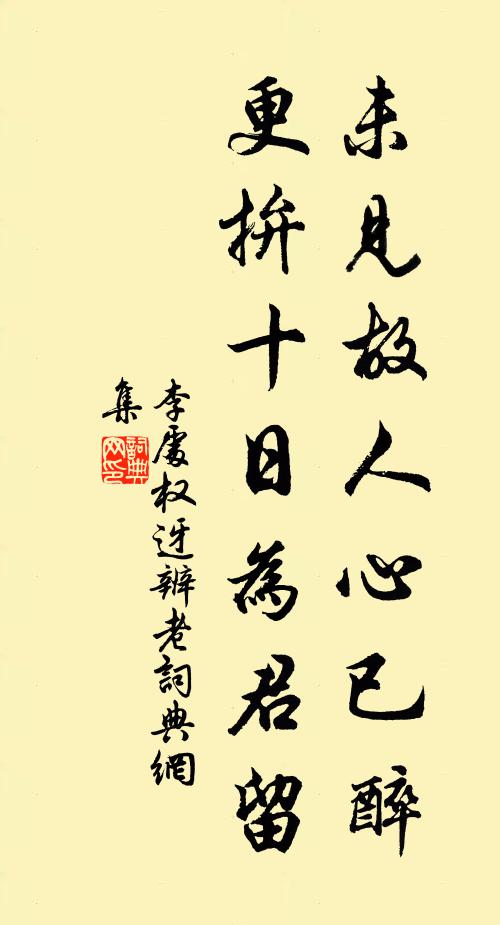 未見故人心已醉
更拚十日為君留
李處权迓辨老詞典網
集
詞典网印